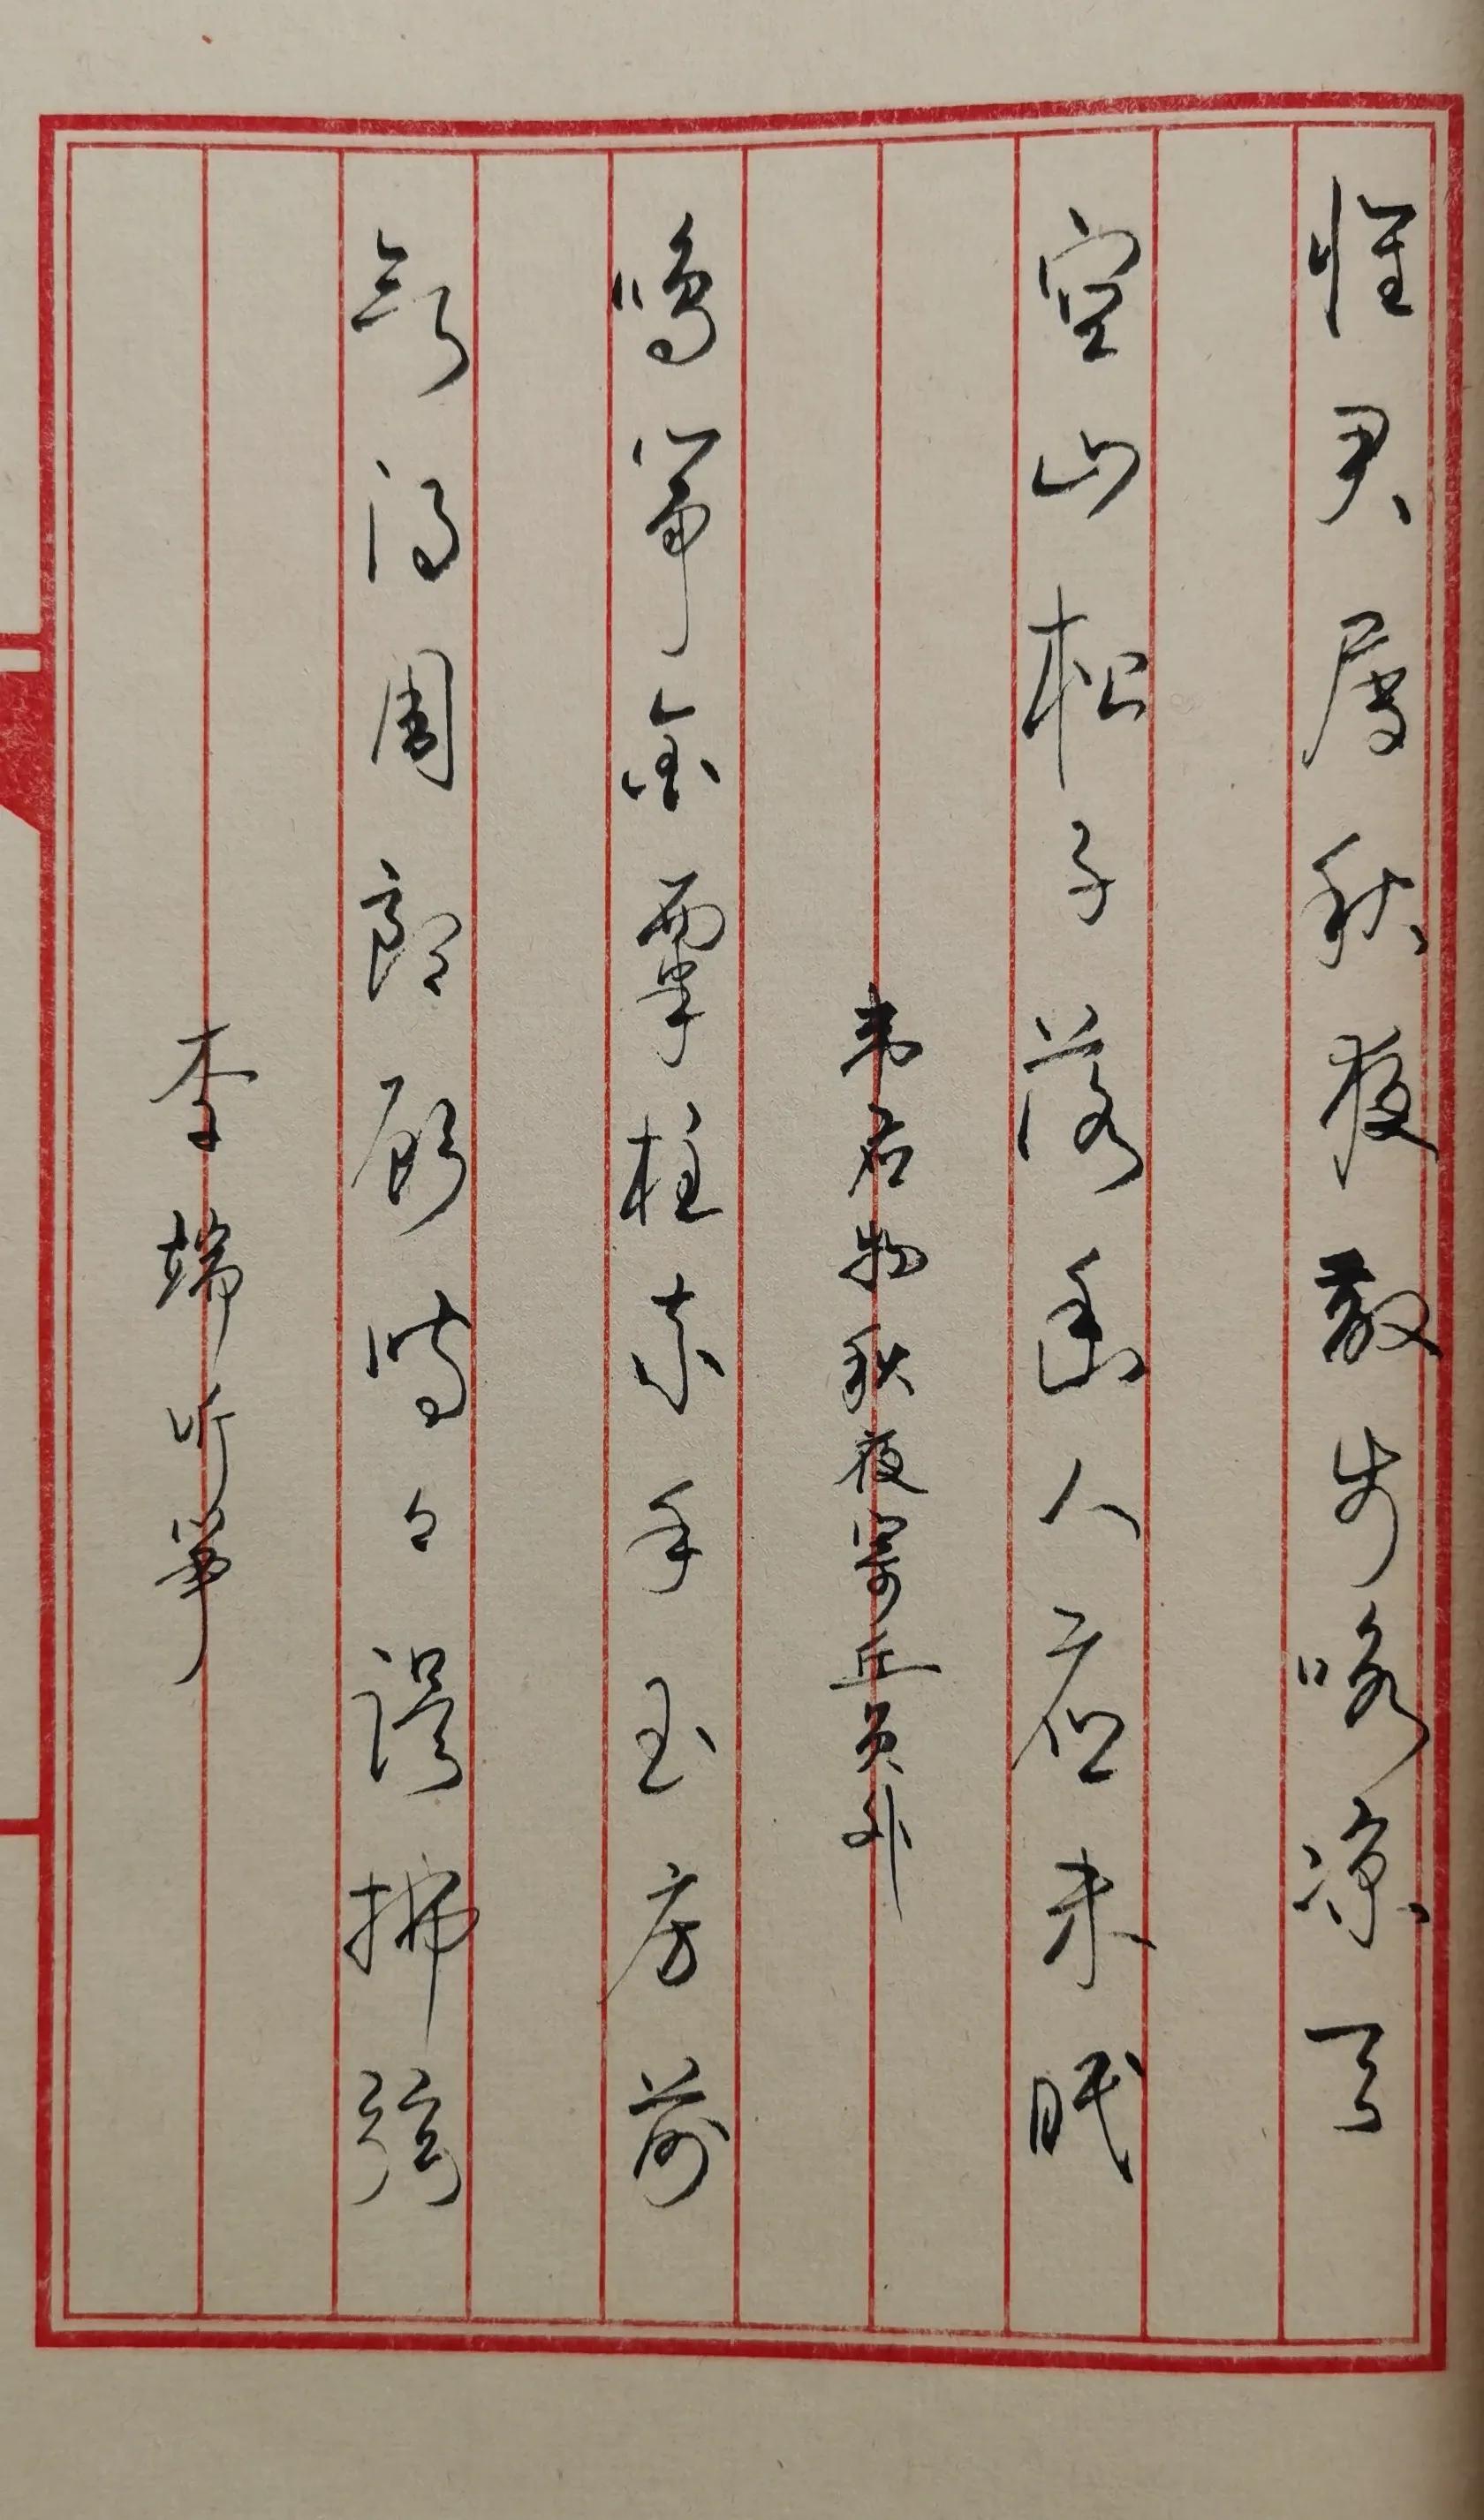 怀君属秋夜散步咏凉天
空山松子落幽人应未眠
韦应物秋夜寄丘员外
鸣筝金粟柱素手玉房前
欲得周郎顾时々误拂弦
李端听筝